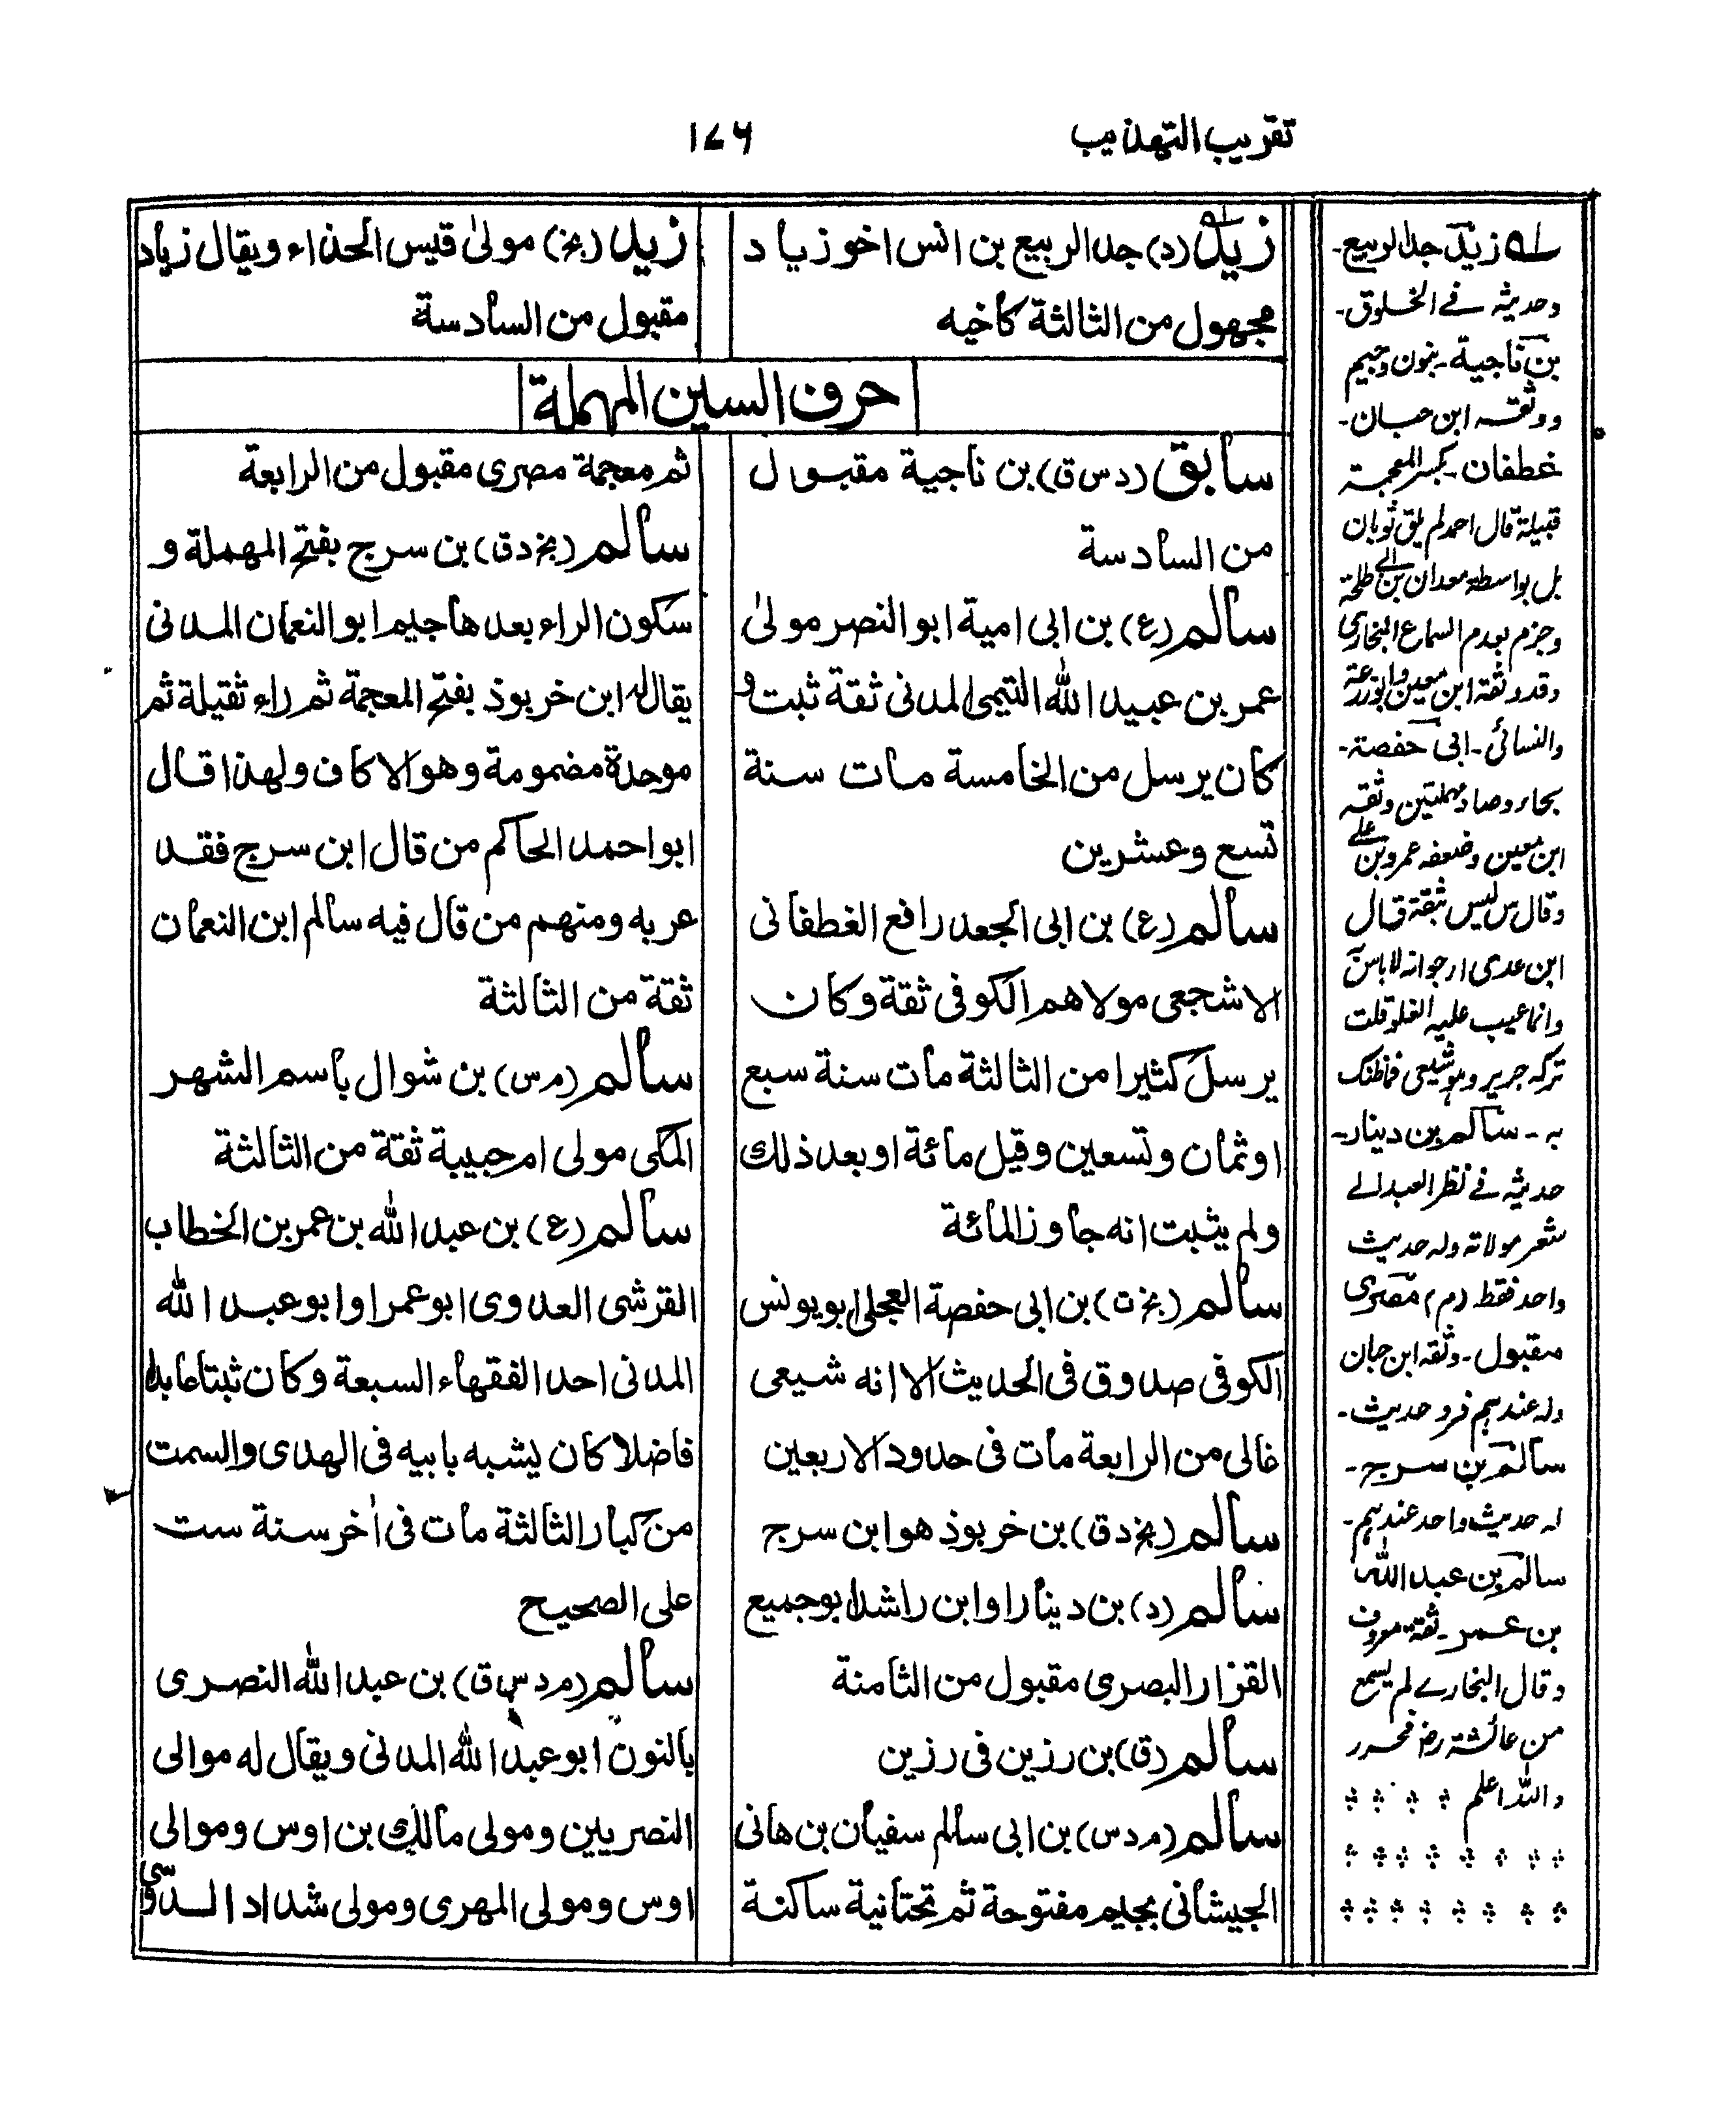 تقريب التهذيب
١٧٦
زيد (د) جد الربيع بن انس اخو زياد
مجهول من الثالثة كاخيه
زيد (بخ) مولى قيس الحذاء ويقال زياد
مقبول من السادسة
حرف السين المهملة
سابق (د س ق) بن ناجية مقبول
من السادسة
سالم (ع) بن ابى امية ابو النضر مولى
عمر بن عبيد الله التيمى المدنى ثقة ثبت و
كان يرسل من الخامسة مات سنة
تسع وعشرين
سالم (ع) بن ابى الجعد رافع الغطفانى
الاشجعى مولاهم الكوفى ثقة وكان
يرسل كثيرا من الثالثة مات سنة سبع
او ثمان وتسعين وقيل مائة او بعد ذلك
ولم يثبت انه جاوز المائة
سالم (بخ ت) بن ابى حفصة العجلى ابو يونس
الكوفى صدوق فى الحديث الا انه شيعى
غالى من الرابعة مات فى حدود الاربعين
سالم (بخ د ق) بن خربوذ هو ابن سرج
سالم (د) بن دينار او ابن راشد ابو جميع
القزاز البصرى مقبول من الثامنة
سالم (ق) بن رزين فى رزين
سالم (م د س) بن ابى سالم سفيان بن هانى
الجيشانى بجيم مفتوحة ثم تحتانية ساكنة
ثم معجمة مصرى مقبول من الرابعة
سالم (بخ د ق) بن سرج بفتح المهملة و
سكون الراء بعدها جيم ابو النعمان المدنى
يقال له ابن خربوذ بفتح المعجمة ثم راء ثقيلة ثم
موحدة مضمومة وهو الاكاف ولهذا قال
ابو احمد الحاكم من قال ابن سرج فقد
عربه ومنهم من قال فيه سالم ابن النعمان
ثقة من الثالثة
سالم (م س) بن شوال باسم الشهر
المكى مولى ام حبيبة ثقة من الثالثة
سالم (ع) بن عبد الله بن عمر بن الخطاب
القرشى العدوى ابو عمر او ابو عبد الله
المدنى احد الفقهاء السبعة وكان ثبتا عابدا
فاضلا كان يشبه بابيه فى الهدى والسمت
من كبار الثالثة مات فى اٰخر سنة ست
على الصحيح
سالم (م د س ق) بن عبد الله النصرى
بالنون ابو عبد الله المدنى ويقال له موالى
النصريين ومولى مالك بن اوس وموالى
اوس ومولى المهرى ومولى شداد الدوسى
له زيد جد الربيع -
وحديثه فے الخلوق -
بن ناجية - بنون وجيم
ووثقه ابن حبان -
غطفان - بكسر المعجمة
قبيلة قال احمد لم يلق ثوبان
بل بواسطة معدان بن ابى طلحة
وجزم بعدم السماع البخارى
وقد وثقه ابن معين وابو زرعة
والنسائى - ابى حفصة -
بحاء وصاد مهملتين وثقه
ابن معين وضعفه عمرو بن على
وقال س ليس بثقة قال
ابن عدى ارجو انه لا باس به
وانما عيب عليه الغلو قلت
تركه جرير وهو شيعى فما ظنك
به - سالم بن دينار -
حديثه فے نظر العبد الے
شعر مولاته وله حديث
واحد فقط (م) مصرى
مقبول - وثقه ابن حبان
وله عندهم فرد حديث -
سالم بن سرج -
له حديث واحد عندهم -
سالم بن عبد الله
بن عمر - ثقة معروف
وقال البخارے لم يسمع
من عائشة رض فحرر
والله اعلم